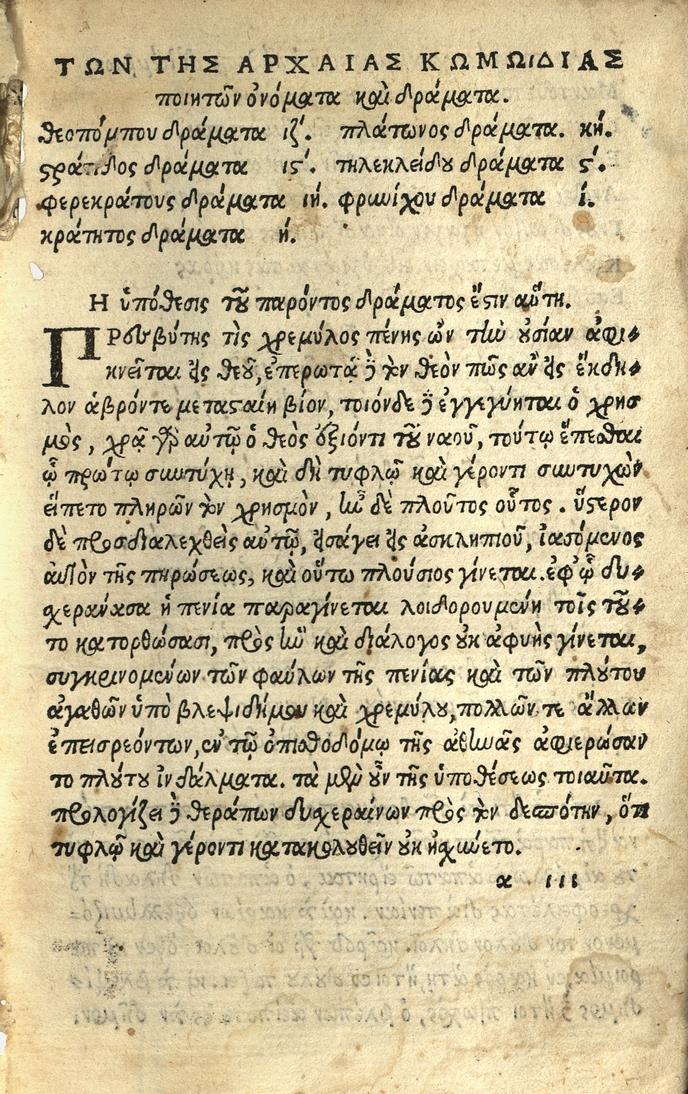 ΤΩΝ ΤΗΣ ΑΡΧΑΙΑΣ ΚΩΜΩΙΔΙΑΣ
ποιητῶν ὀνόματα καὶ δράματα.
θεοπόμπου δράματα ιζ΄. πλάτωνος δράματα. κή.
ϛράτιδος δράματα ιϛ΄. τηλεκλείδου δράματα ϛ΄.
φερεκράτους δράματα ιή. φρυνίχου δράματα ί.
κράτητος δράματα ή.
Η ὑπόθεσις τοῦ παρόντος δράματος ἔϛιν αὕτη.
ΠΡεσβύτης τὶς χρεμύλος πένης ὢν τὴν οὐσίαν ἀφι-
κνεῖται εἰς θεοῦ, ἐπερωτᾷ δὲ τὸν θεὸν πῶς ἂν εἰς ἔκδη-
λον ἁβρόν τε μεταϛαίη βίον, τοιόνδε δὲ ἐγγεγύηται ὁ χρησ
μὸς, χρᾷ γὰρ αὐτῷ ὁ θεὸς ἐξιόντι τοῦ ναοῦ, τούτῳ ἕπεσθαι
ᾧ πρώτῳ συντύχῃ, καὶ δὴ τυφλῷ καὶ γέροντι συντυχὼν
εἵπετο πληρῶν τὸν χρησμὸν, ἦν δὲ πλοῦτος οὗτος. ὕϛερον
δὲ προσδιαλεχθεὶς αὐτῷ, εἰσάγει εἰς ἀσκληπιοῦ, ἰασόμενος
αὐτὸν τῆς πηρώσεως, καὶ οὕτω πλούσιος γίνεται. ἐφ' ᾧ δυ-
χεράνασα ἡ πενία παραγίνεται λοιδορουμένη τοῖς τοῦ-
το κατορθώσασι, πρὸς ἣν καὶ διάλογος οὐκ ἀφυὴς γίνεται,
συγκρινομένων τῶν φαύλων τῆς πενίας καὶ τῶν πλούτου
ἀγαθῶν ὑπὸ βλεψιδήμου καὶ χρεμύλου, πολλῶν τε ἄλλων
ἐπεισρεόντων, ἐν τῷ ὀπισθοδόμῳ τῆς ἀθηνᾶς ἀφιερώσαν
το πλούτου ἰνδάλματα. τὰ μὲν οὖν τῆς ὑποθέσεως τοιαῦτα.
προλογίζει δὲ θεράπων δυχεραίνων πρὸς τὸν δεσπότην, ὅτι
τυφλῷ καὶ γέροντι κατακολουθεῖν οὐκ ᾐχύνετο.
α iii